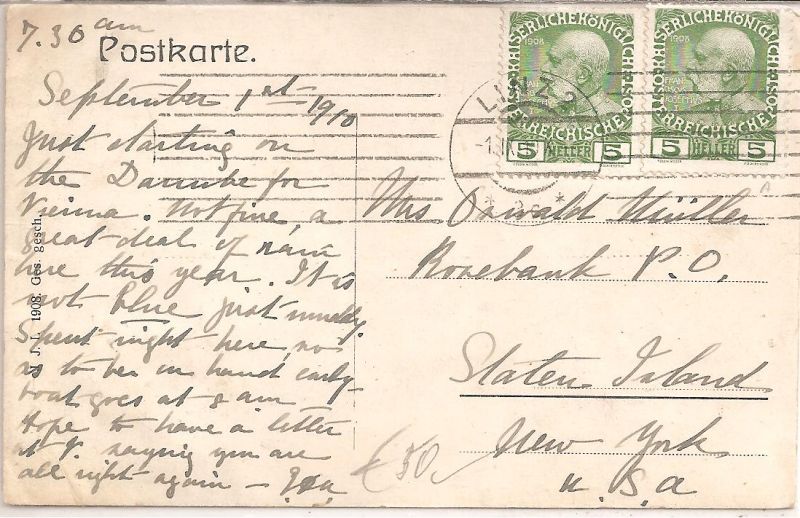 7.30 am
Postkarte.
September 1st 1910
Just starting on
the Danube for
Vienna. Not fine, a
great deal of rain
here this year. It is
not blue just muddy.
Spent night here, so
as to be on hand early-
boat goes at 8 am
Hope to have a letter
at V. saying you are
all right again —
J. J. 1908. Ges. gesch.
KAISERLICHE KÖNIGLICHE
1908
ÖSTERREICHISCHE
5 HELLER 5
KAISERLICHE KÖNIGLICHE
1908
ÖSTERREICHISCHE
5 HELLER 5
LINZ 2
Mrs Oswald Müller
Rosebank P.O.
Staten Island
New York
U.S.a
50